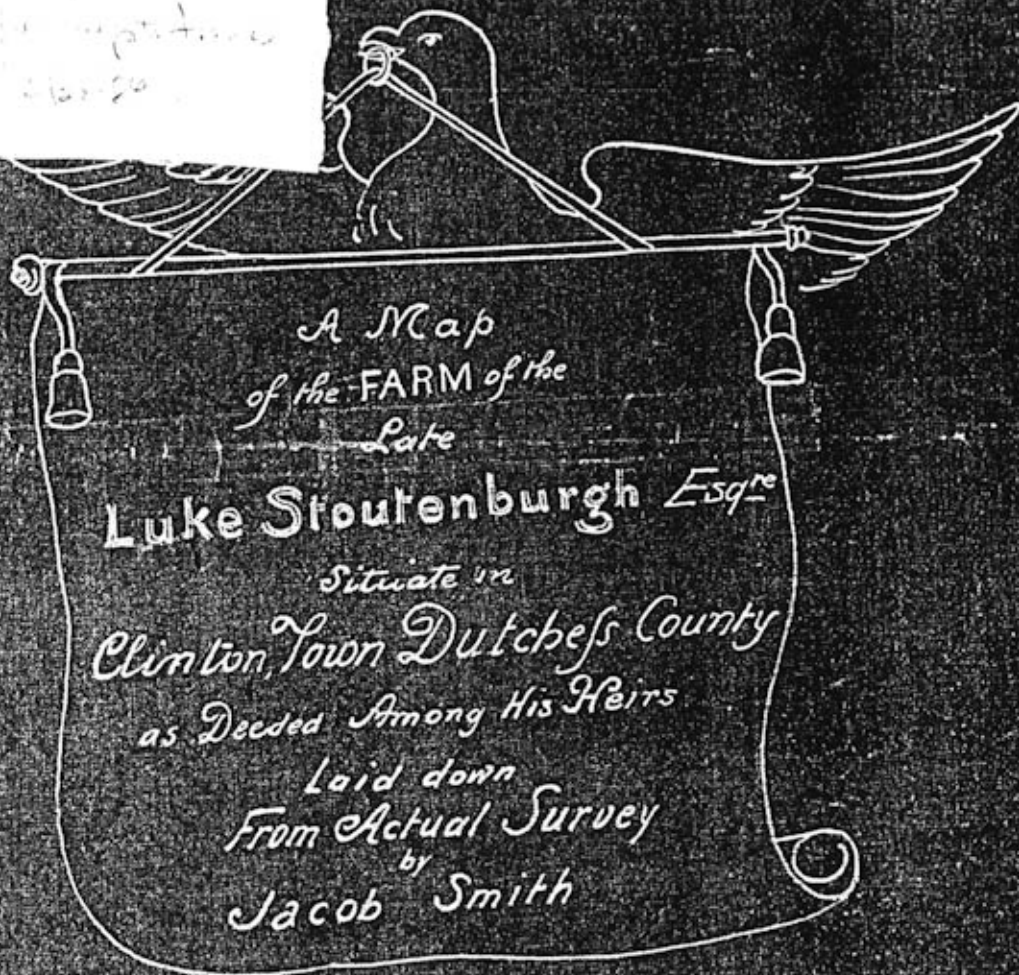 A Map
of the FARM of the
Late
Luke Stoutenburgh Esqre
Situate in
Clinton, Town Dutcheſs County
as Deeded Among His Heirs
Laid down
From Actual Survey
by
Jacob Smith